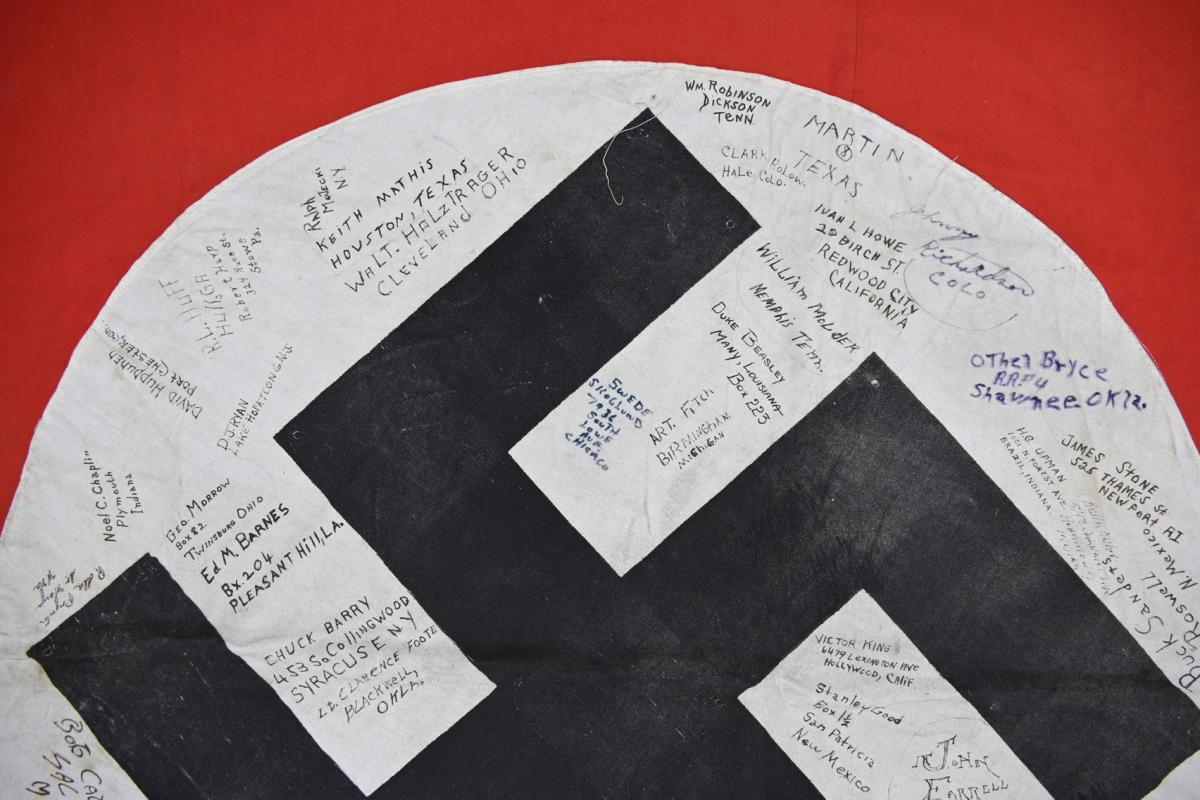 WM. ROBINSON
DICKSON
TENN.
MARTIN
TEXAS
CLARK ROLOW.
HALE, COLO.
RALPH
NY
KEITH MATHIS
HOUSTON, TEXAS
WALT. HALZTRAGER
CLEVELAND OHIO
R.L. HUFF
Robert Harp
324 Race St.
Stowe Pa.
IVAN L HOWE
20 BIRCH ST.
REDWOOD CITY
CALIFORNIA
Johnny
Richardson
COLO
WILLIAM
MEMPHIS TENN.
DUKE BEASLEY
MANY, LOUISIANA
BOX 223
SWEDE
SKOGLUND
7936
SOUTH
LOWE
AVE
CHICAGO
ART. FITCH
BIRMINGHAM
MICHIGAN
OTHEL BRYCE
R.R.#4
Shawnee OKla.
DAVID
PORT CHESTER,
DJ RYAN
LAKE HOPATCONG N.J.
H.G. UPMAN
1001 N. FOREST AVE
BRAZIL, INDIANA
JAMES STONE
525 THAMES St
NEWPORT RI
Buck Sanders
ROSWELL
N. MEXICO
Noel C. Chaplin
Plymouth
Indiana
GEO. MORROW
BOX 82
TWINSBURG OHIO
Ed M. BARNES
Bx. 204
PLEASANT Hill, LA.
CHUCK BARRY
453 So. COLLINGWOOD
SYRACUSE NY
LT. CLARENCE FOOTE
BLACKWELL,
OKLA.
VICTOR KING
6479 LEXINGTON AVE
HOLLYWOOD, CALIF.
Stanley Good
Box 1½
San Patricia
New Mexico
JOHN
FARRELL
Bob